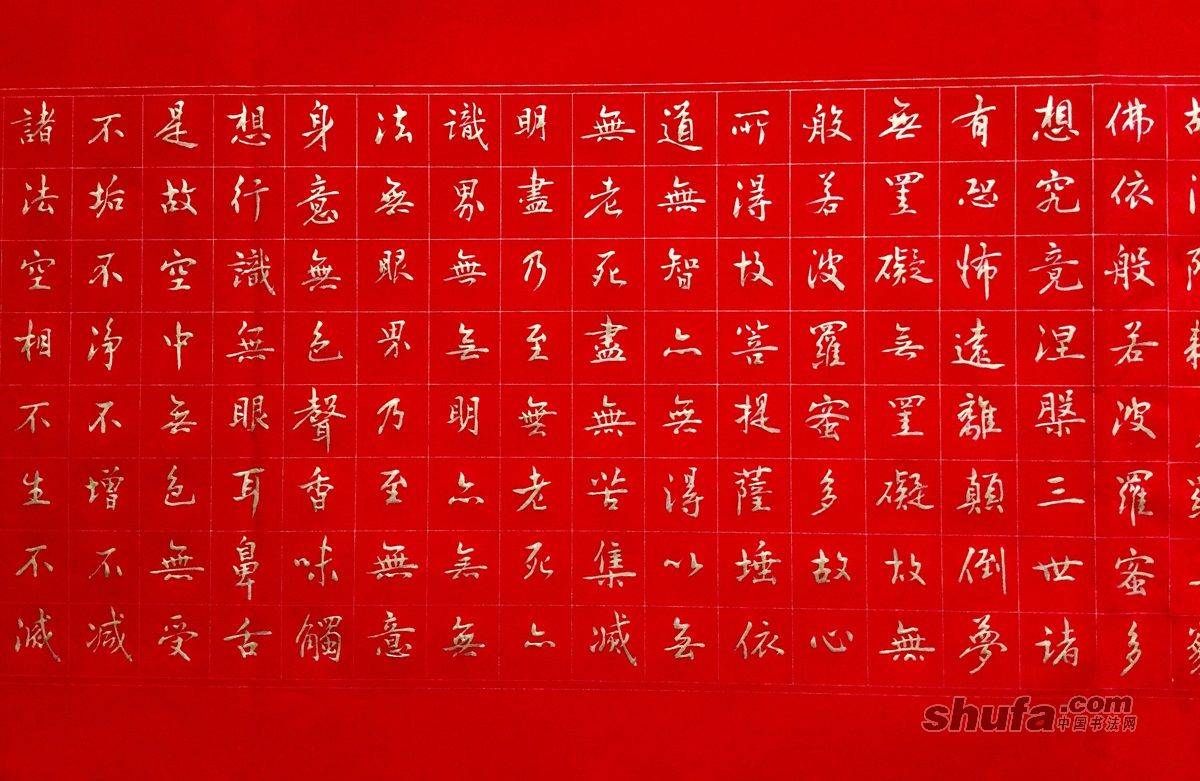 諸法空相不生不滅
不垢不净不增不减
是故空中無色無受
想行識無眼耳鼻舌
身意無色聲香味觸
法無眼界乃至無意
識界無無明亦無無
明盡乃至無老死亦
無老死盡無苦集滅
道無智亦無得以無
所得故菩提薩埵依
般若波羅蜜多故心
無罣礙無罣礙故無
有恐怖遠離顛倒夢
想究竟涅槃三世諸
佛依般若波羅蜜多
shufa.com
中国书法网